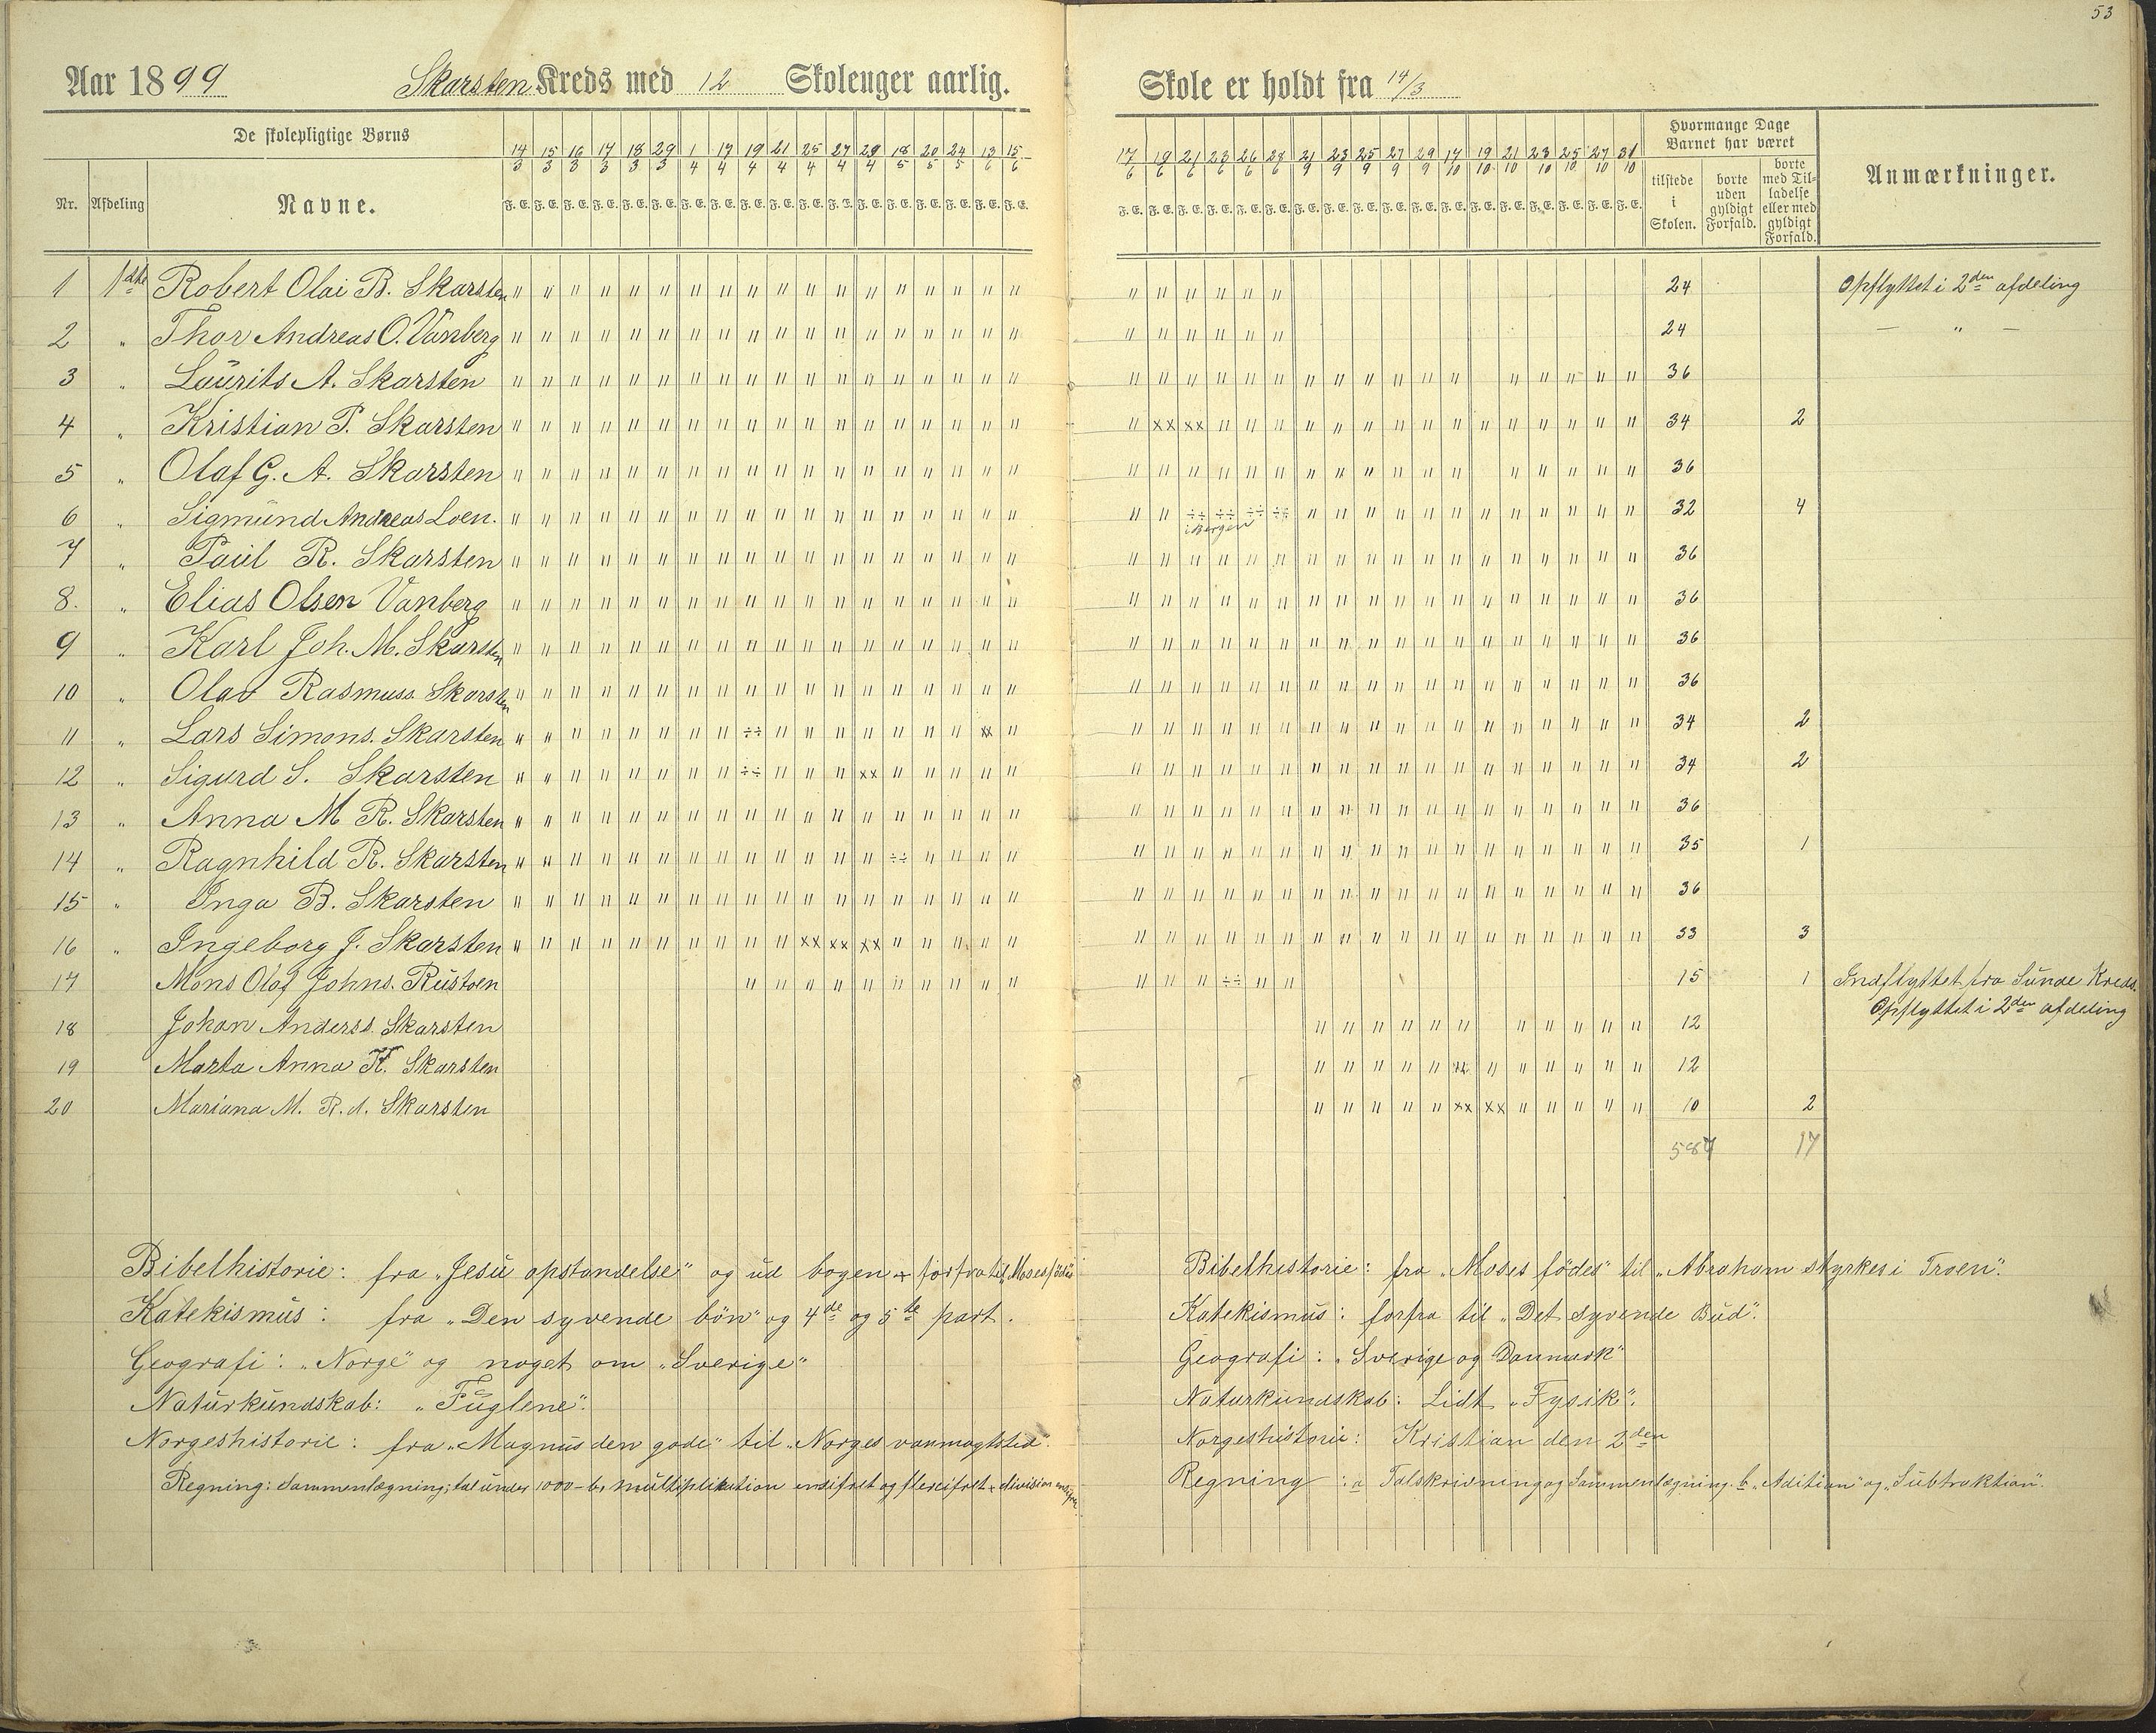 53
Aar 1899 Skarsten Kreds med 12 Skoleuger aarlig. Skole er holdt fra 14/3
De skolepligtige Børns
Nr. Afdeling Navne.
14/3 15/3 16/3 17/3 18/3 29/3 1/4 17/4 19/4 21/4 25/4 27/4 29/4 18/5 20/5 24/5 13/6 15/6
F. E. F. E. F. E. F. E. F. E. F. E. F. E. F. E. F. E. F. E. F. E. F. E. F. E. F. E. F. E. F. E. F. E. F. E.
17/6 19/6 21/6 23/6 26/6 28/6 21/9 23/9 25/9 27/9 29/9 17/10 19/10 21/10 23/10 25/10 27/10 31/10
F. E. F. E. F. E. F. E. F. E. F. E. F. E. F. E. F. E. F. E. F. E. F. E. F. E. F. E. F. E. F. E. F. E. F. E.
Hvormange Dage Barnet har været
tilstede i Skolen.
borte uden gyldigt Forfald.
borte med Tilladelse eller med gyldigt Forfald.
Anmærkninger.
1 1ste Robert Olai B. Skarsten 24 Opflyttet i 2den afdeling
2 " Thor Andreas O. Vanberg 24 — " —
3 " Laurits A. Skarsten 36
4 " Kristian P. Skarsten xx xx 34 2
5 " Olaf G. A. Skarsten 36
6 " Sigmund Andreas Loen. ÷÷ ÷÷ ÷÷ ÷÷ i Bergen 32 4
7 " Paul R. Skarsten 36
8. " Elias Olsen Vanberg 36
9 " Karl Joh. M. Skarsten 36
10 " Olav Rasmuss. Skarsten 36
11 " Lars Simons. Skarsten ÷÷ xx 34 2
12 " Sigurd S. Skarsten ÷÷ xx 34 2
13 " Anna M R. Skarsten 36
14 " Ragnhild R. Skarsten ÷÷ 35 1
15 " Inga B. Skarsten 36
16 " Ingeborg J. Skarsten xx xx xx 33 3
17 Mons Olaf Johns. Rustoen ÷÷ 15 1 Indflyttet fra Sunde Kreds.
Opflyttet i 2den afdeling
18 Johan Anderss. Skarsten 12
19 Marta Anna K. Skarsten 12
20 Mariana M. R.d. Skarsten xx xx 10 2
587 17
Bibelhistorie: fra "Jesu opstandelse" og ud bogen + forfra til Moses fødes
Katekismus: fra "Den syvende bön" og 4de og 5te part.
Geografi: "Norge" og noget om "Sverige"
Naturkundskab: "Fuglene".
Norgeshistorie: fra "Magnus den gode" til "Norges vanmagtstid".
Regning: Sammenlægning; tal under 1000 - b, multiplikation ensifret og flersifret + division
Bibelhistorie: fra "Moses fødes" til "Abraham styrkes i Troen".
Katekismus: forfra til "Det syvende Bud".
Geografi: "Sverige og Danmark"
Naturkundskab: Lidt "Fysik".
Norgeshistorie: Kristian den 2den
Regning: a Talskrivning og Sammenlægning. b. "Adition" og "Subtraktion".